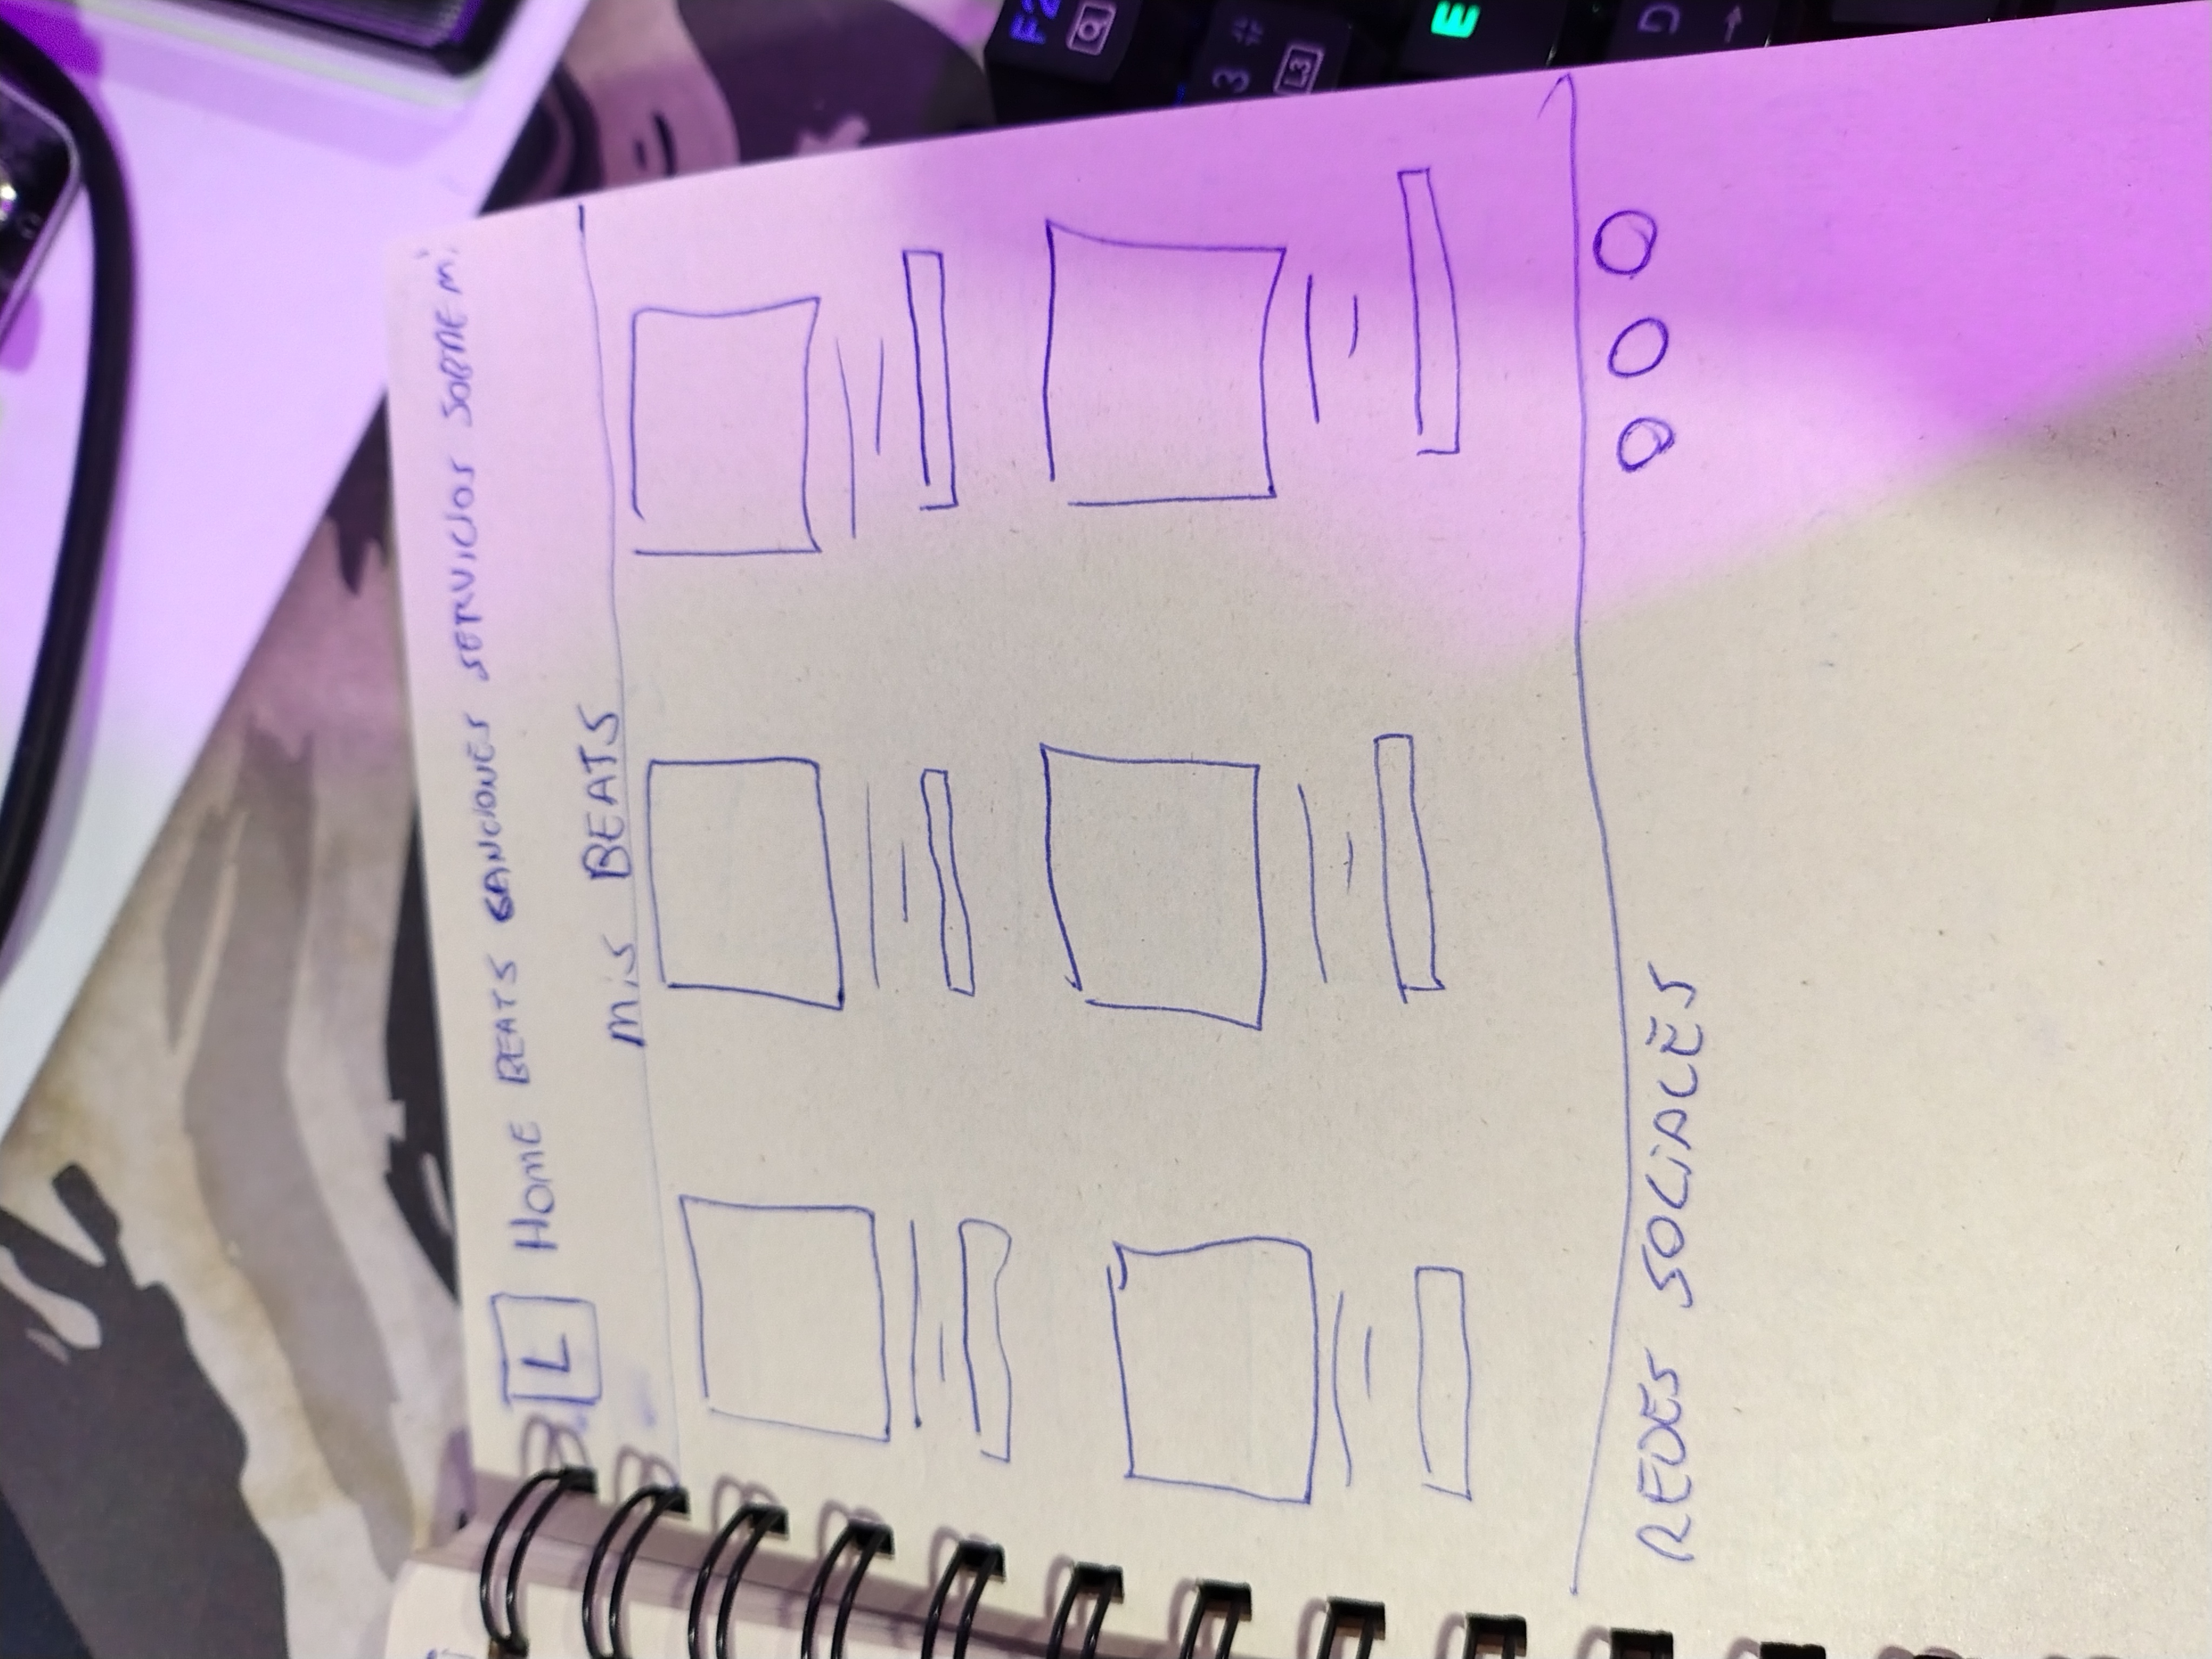 L HOME BEATS CANCIONES SERVICIOS SOBRE Mi
MiS BEATS
REDES SOCiALES
F2
3 #
L3
E
D